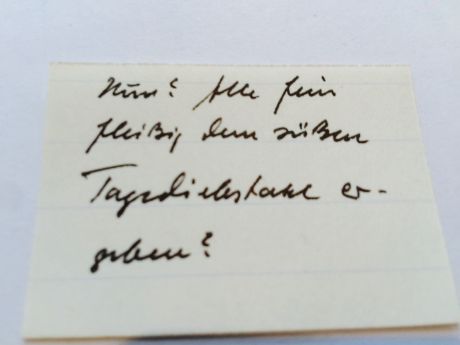 Nun? Alle fein
fleißig dem süßen
Tagediebstahl er-
geben?